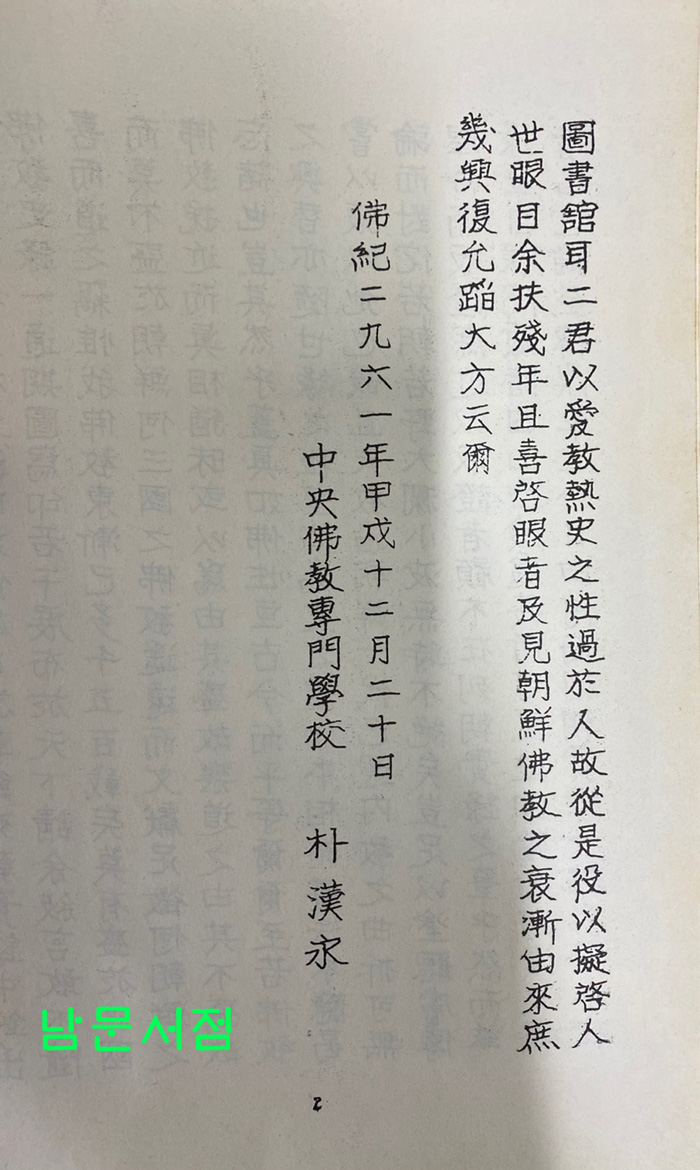 圖書舘耳二君以愛教熱史之性過於人故從是役以擬啓人
世眼目余扶殘年且喜啓眼音及見朝鮮佛教之衰漸由來庶
幾興復允蹈大方云爾
佛紀二九六一年甲戍十二月二十日
中央佛教專門學校 朴漢永
남문서점
2